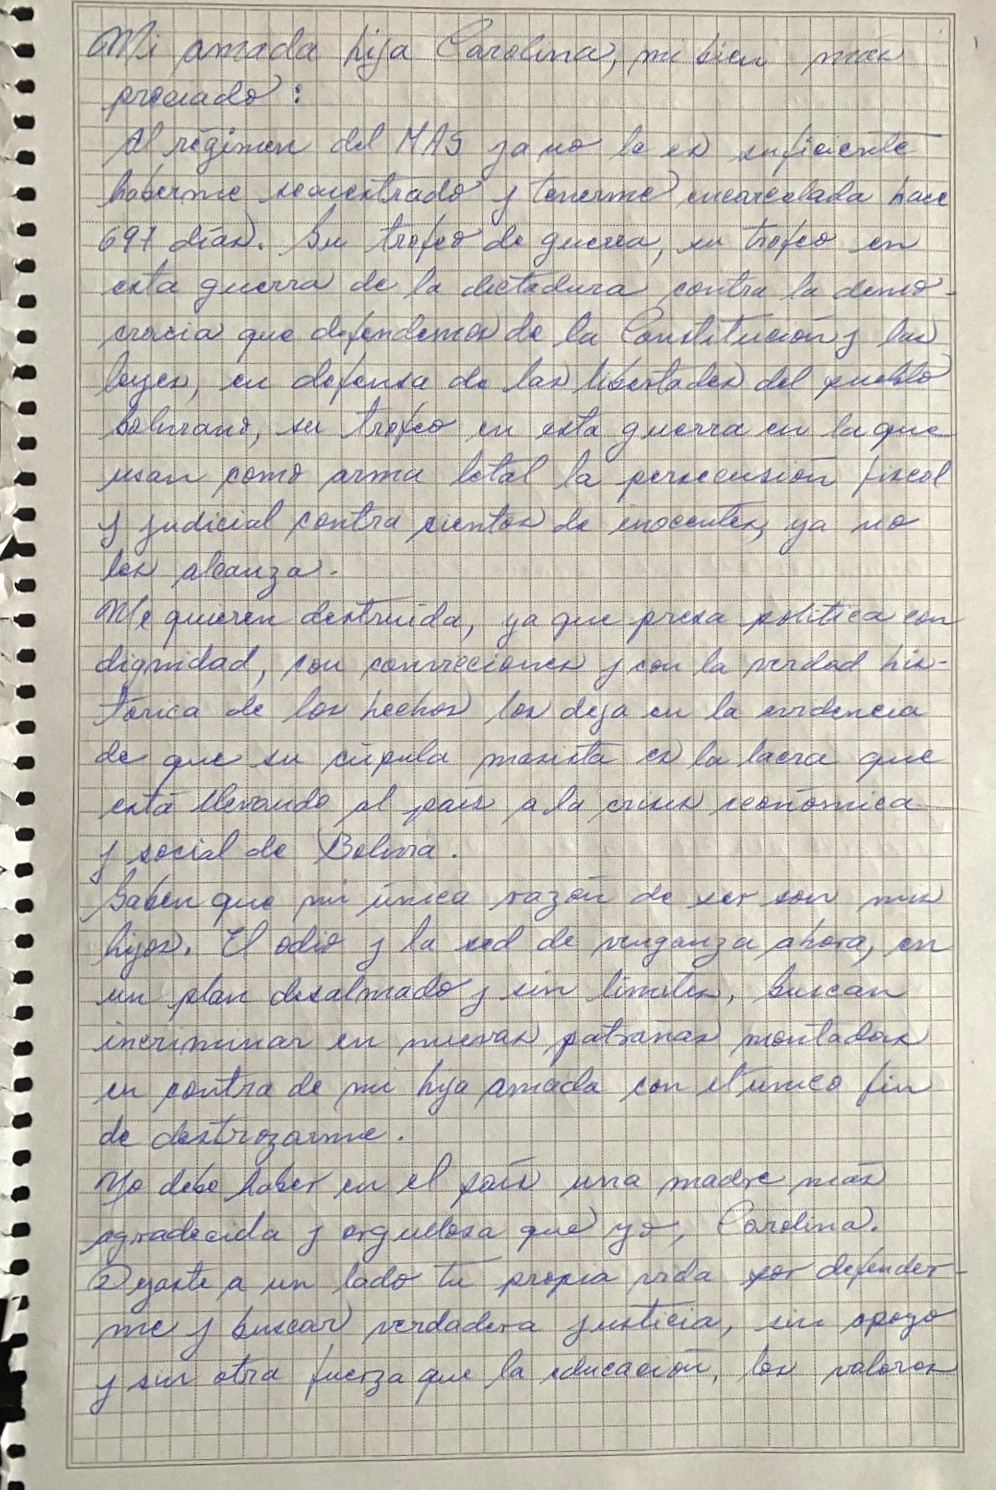 Mi amada hija Carolina, mi bien más
preciado:
Al régimen del MAS ya no le es suficiente
haberme secuestrado y tenerme encarcelada hace
697 días. Su trofeo de guerra, su trofeo en
esta guerra de la dictadura contra la demo-
cracia que defendemos de la Constitución y las
leyes, en defensa de las libertades del pueblo
boliviano, su trofeo en esta guerra en la que
usan como arma letal la persecusión fiscal
y judicial contra cientos de inocentes, ya no
les alcanza.
Me quieren destruida, ya que presa política con
dignidad, con convicciones y con la verdad his-
tórica de los hechos los deja en la evidencia
de que su cúpula masista es la lacra que
está llevando al país a la crisis económica
y social de Bolivia.
Saben que mi única razón de ser son mis
hijos. El odio y la sed de venganza ahora, en
un plan desalmado y sin límites, buscan
incriminar en nuevas patrañas montadas
en contra de mi hija amada con el único fin
de destrozarme.
No debe haber en el país una madre más
agradecida y orgullosa que yo, Carolina.
Dejaste a un lado tu propia vida por defender-
me y buscar verdadera justicia, sin apoyo
y sin otra fuerza que la educación, los valores